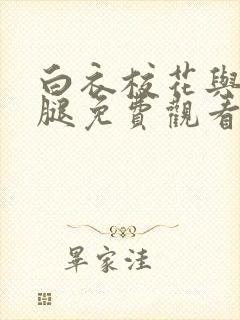 白衣校花與
腿免費觀看
畢家洼